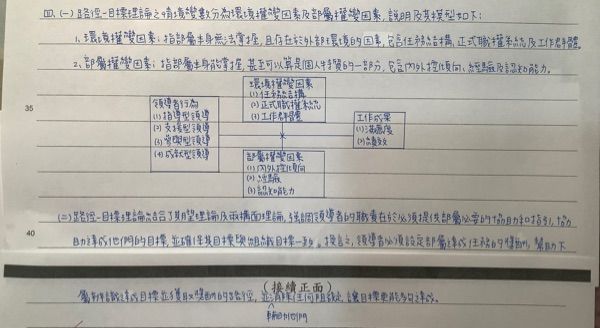 四、(一) 路徑-目標理論之情境變數分為環境權變因素及部屬權變因素, 說明及其模型如下:
1、環境權變因素: 指部屬本身無法掌握, 且存在於外部環境的因素, 包含任務結構, 正式職權系統及工作群體
2、部屬權變因素: 指部屬本身能掌握, 甚至可以算是個人特質的一部分, 包含內外控傾向, 經驗及認知能力。
35
環境權變因素
(1) 任務結構
(2) 正式職權系統
(3) 工作群體
領導者行為
(1) 指導型領導
(2) 支援型領導
(3) 參與型領導
(4) 成就型領導
工作成果
(1) 滿意度
(2) 績效
部屬權變因素
(1) 內外控傾向
(2) 經驗
(3) 認知能力
(二) 路徑-目標理論結合了期望理論及兩構面理論, 強調領導者的職責在於必須提供部屬必要的協助和指引, 協
40
助達成他們的目標, 並確保其目標與組織目標一致。換言之, 領導者必須設定部屬達成任務的獎酬, 幫助下
(接續正面)
屬辨識達成目標並獲取獎酬的路徑, 並消除任何阻礙, 讓目標更能夠達成。
輔助他們